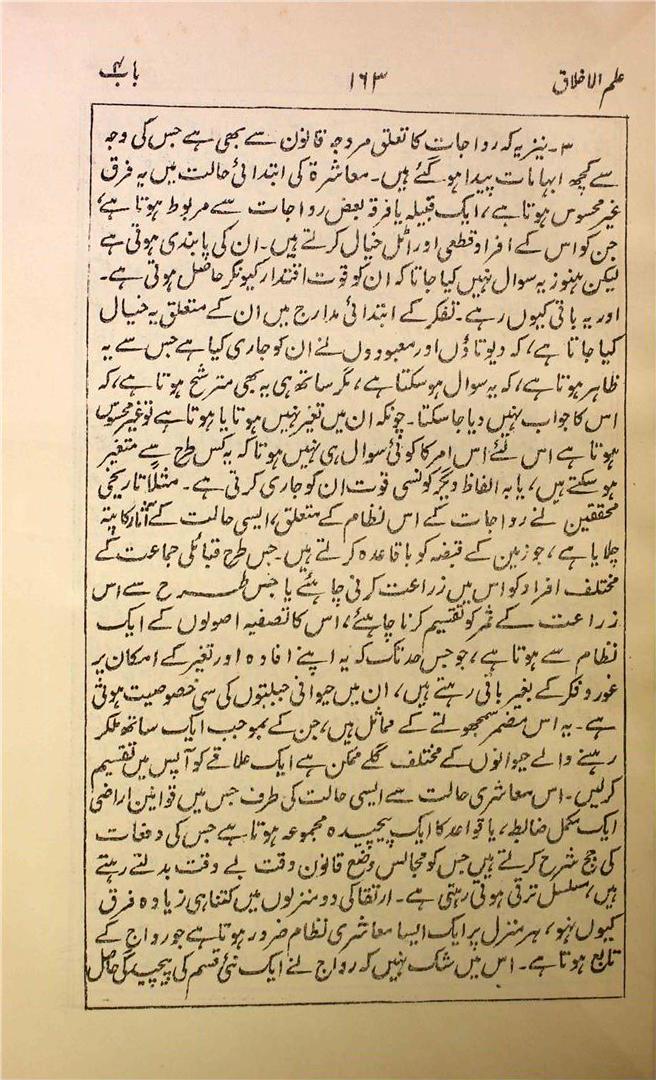 علم الاخلاق ۱۶۳ باب۴
۳۔ نیز یہ کہ رواجات کا تعلق مروجہ قانون سے بھی ہے جس کی وجہ
سے کچھ ابہامات پیدا ہو گئے ہیں۔ معاشرۃ کی ابتدائی حالت میں یہ فرق
غیر محسوس ہوتا ہے، ایک قبیلہ یا فرقہ بعض رواجات سے مربوط ہوتا ہے،
جن کو اس کے افراد قطعی اور اٹل خیال کرتے ہیں۔ ان کی پابندی ہوتی ہے
لیکن ہنوز یہ سوال نہیں کیا جاتا کہ ان کو قوت اقتدار کیونکر حاصل ہوتی ہے۔
اور یہ باقی کیوں رہے۔ تفکر کے ابتدائی مدارج میں ان کے متعلق یہ خیال
کیا جاتا ہے، کہ دیوتاؤں اور معبودوں نے ان کو جاری کیا ہے جس سے یہ
ظاہر ہوتا ہے، کہ یہ سوال ہو سکتا ہے، مگر ساتھ ہی یہ بھی مترشح ہوتا ہے، کہ
اس کا جواب نہیں دیا جا سکتا۔ چونکہ ان میں تغیر نہیں ہوتا یا ہوتا ہے تو غیر محسوس
ہوتا ہے اس لئے اس امر کا کوئی سوال ہی نہیں ہوتا کہ یہ کس طرح سے متغیر
ہو سکتے ہیں، یا بہ الفاظ دیگر کونسی قوت ان کو جاری کرتی ہے۔ مثلاً تاریخی
محققین نے رواجات کے اس نظام کے متعلق، ایسی حالت کے آثار کا پتہ
چلایا ہے، جو زمین کے قبضہ کو باقاعدہ کرتے ہیں۔ جس طرح قبائلی جماعت کے
مختلف افراد کو اس میں زراعت کرنی چاہئے یا جس طرح سے اس
زراعت کے ثمر کو تقسیم کرنا چاہئے، اس کا تصفیہ اصولوں کے ایک
نظام سے ہوتا ہے، جو جس حد تک کہ یہ اپنے افادہ اور تغیر کے امکان پر
غور و فکر کے بغیر باقی رہتے ہیں، ان میں حیوانی جبلتوں کی سی خصوصیت ہوتی
ہے۔ یہ اس مضمر سمجھوتے کے مماثل ہیں، جن کے بموجب ایک ساتھ ملکر
رہنے والے حیوانوں کے مختلف گلے ممکن ہے ایک علاقے کو آپس میں تقسیم
کرلیں۔ اس معاشری حالت سے ایسی حالت کی طرف جس میں قوانین اراضی
ایک مکمل ضابطہ، یا قواعد کا ایک پیچیدہ مجموعہ ہوتا ہے جس کی دفعات
کی جج شرح کرتے ہیں جس کو مجالس وضع قانون وقت بے وقت بدلتے رہتے
ہیں، مسلسل ترقی ہوتی رہتی ہے۔ ارتقا کی دو منزلوں میں کتنا ہی زیادہ فرق
کیوں نہو، ہر منزل پر ایک ایسا معاشری نظام ضرور ہوتا ہے جو رواج کے
تابع ہوتا ہے۔ اس میں شک نہیں کہ رواج نے ایک نئی قسم کی پیچیدگی حاصل